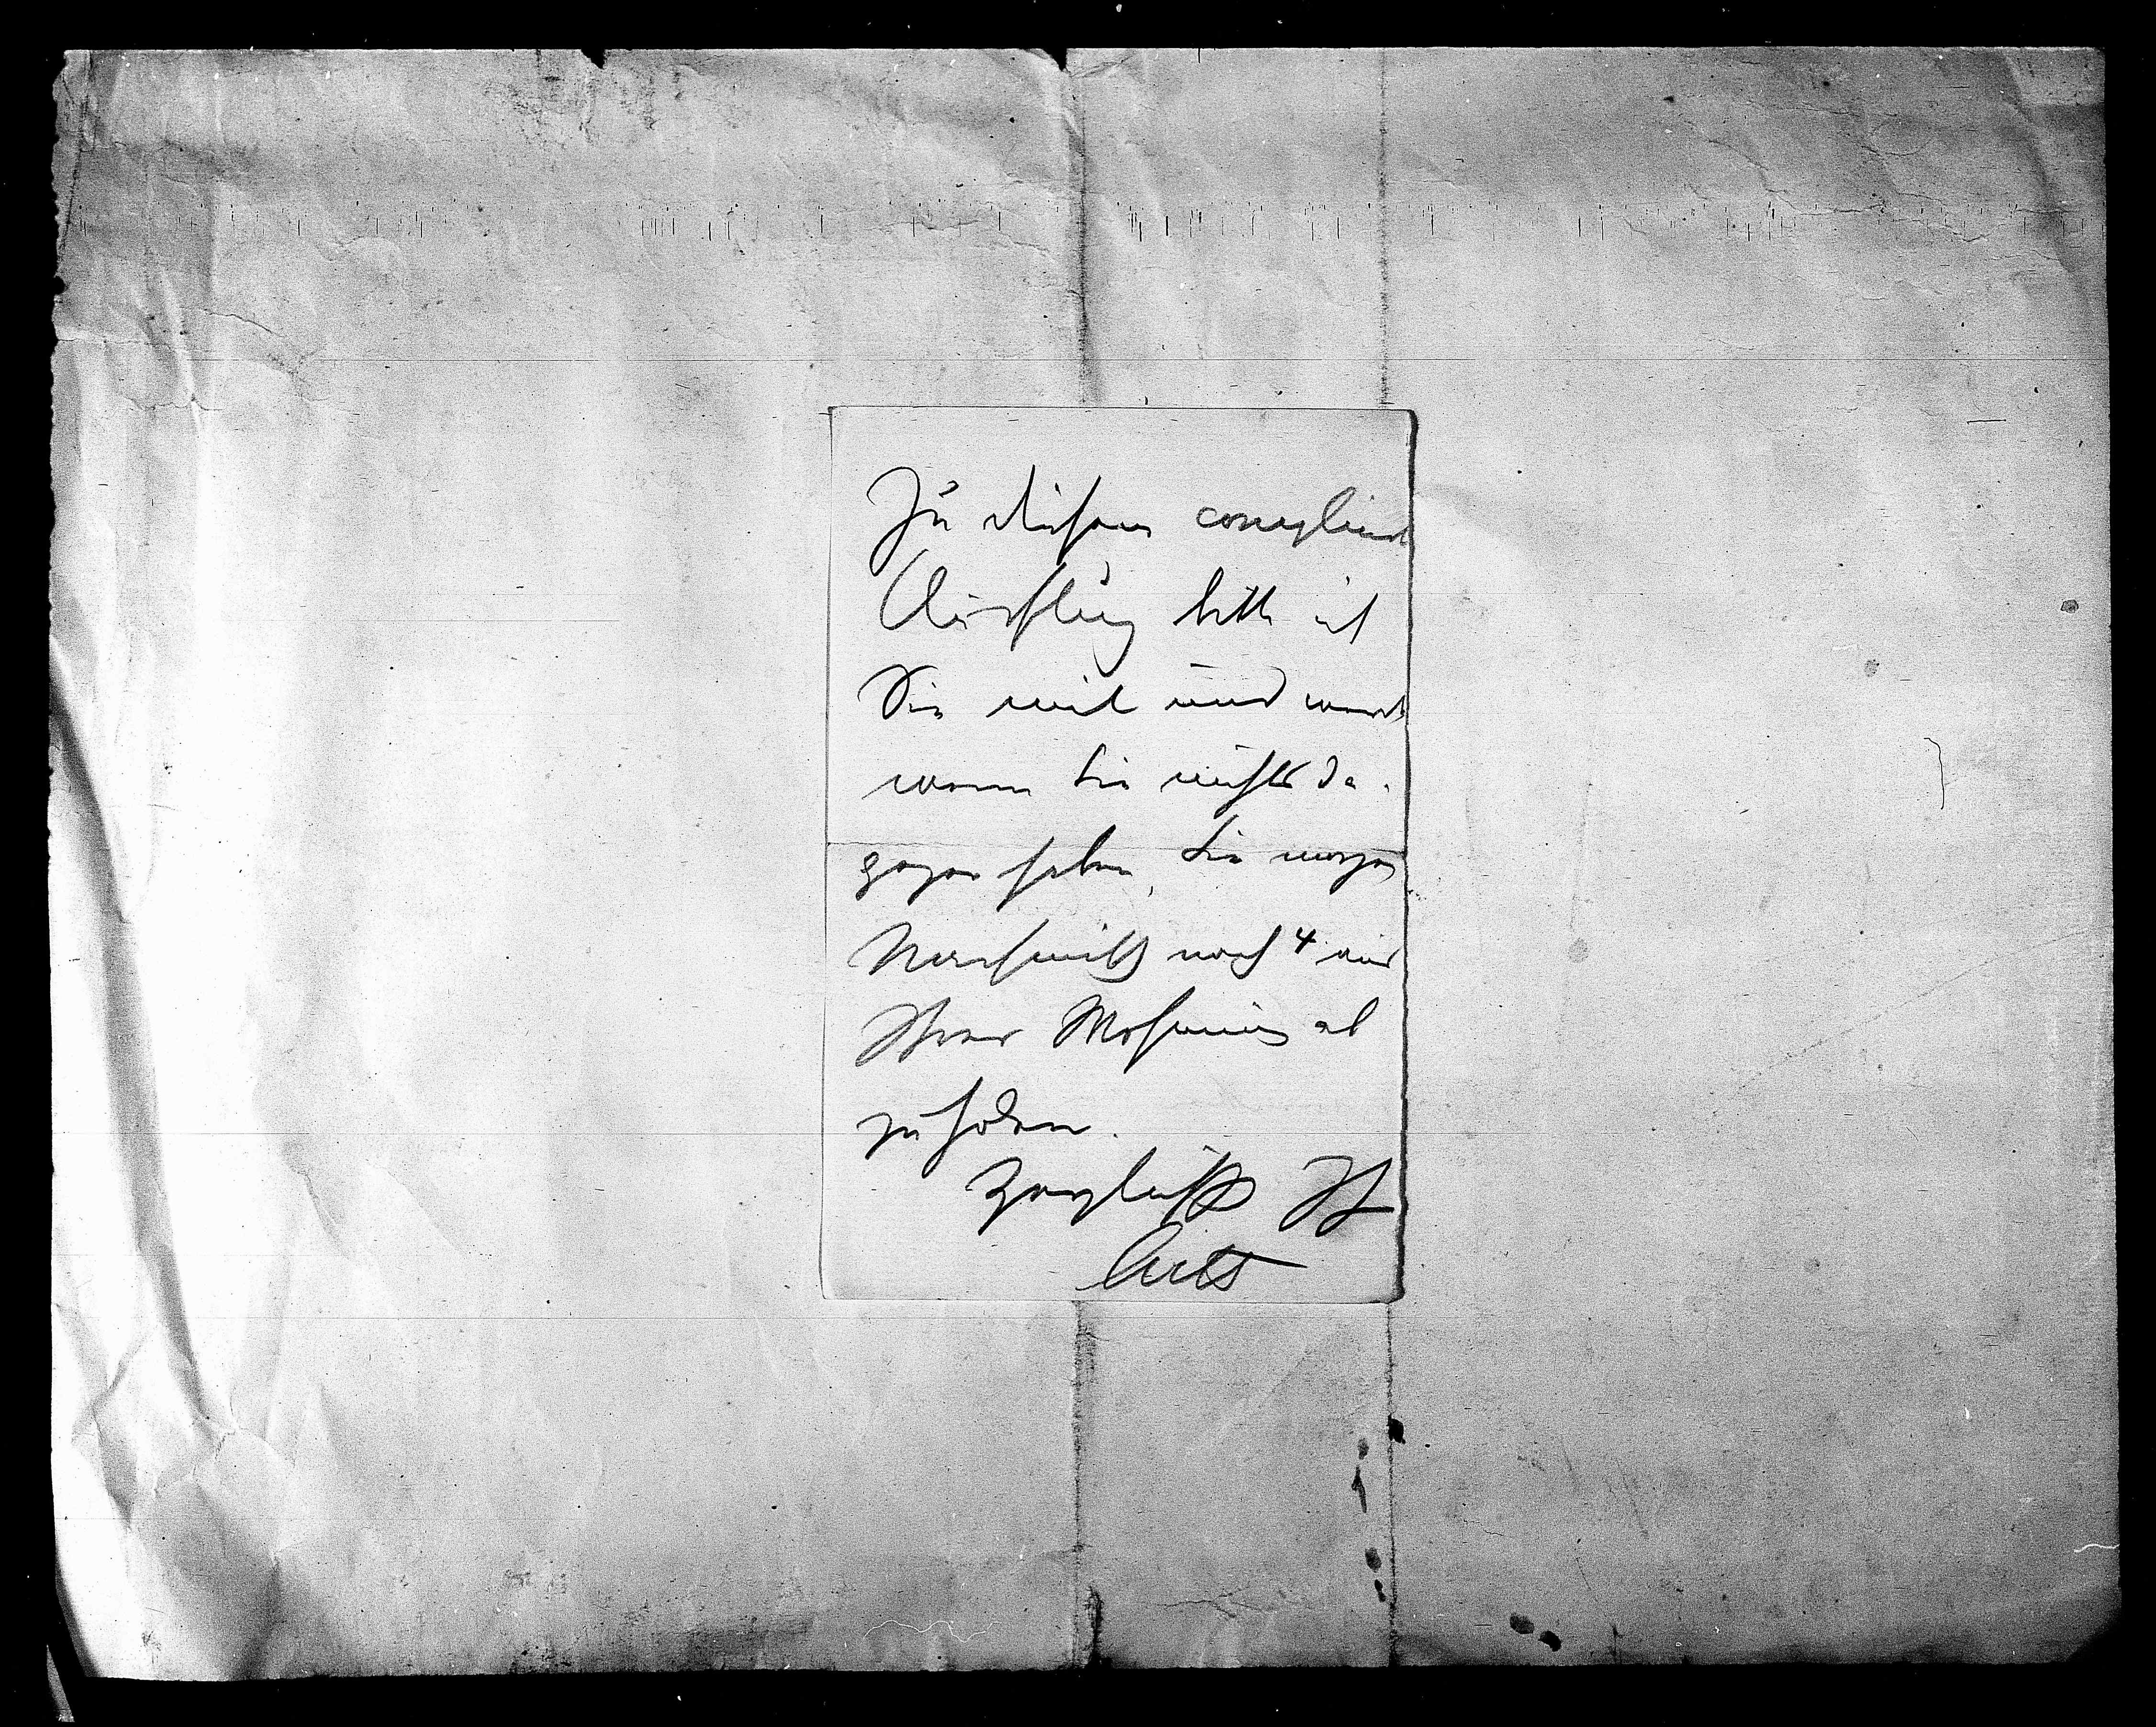 Zu diesem
Ausflug bitte ich
Sie mit und
wenn Sie nichts da-
gegen haben, Sie morgen
Nachmittg nach 4 aus
Ihrer Wohnung ab
zuholen.
Herzlichst Ihr